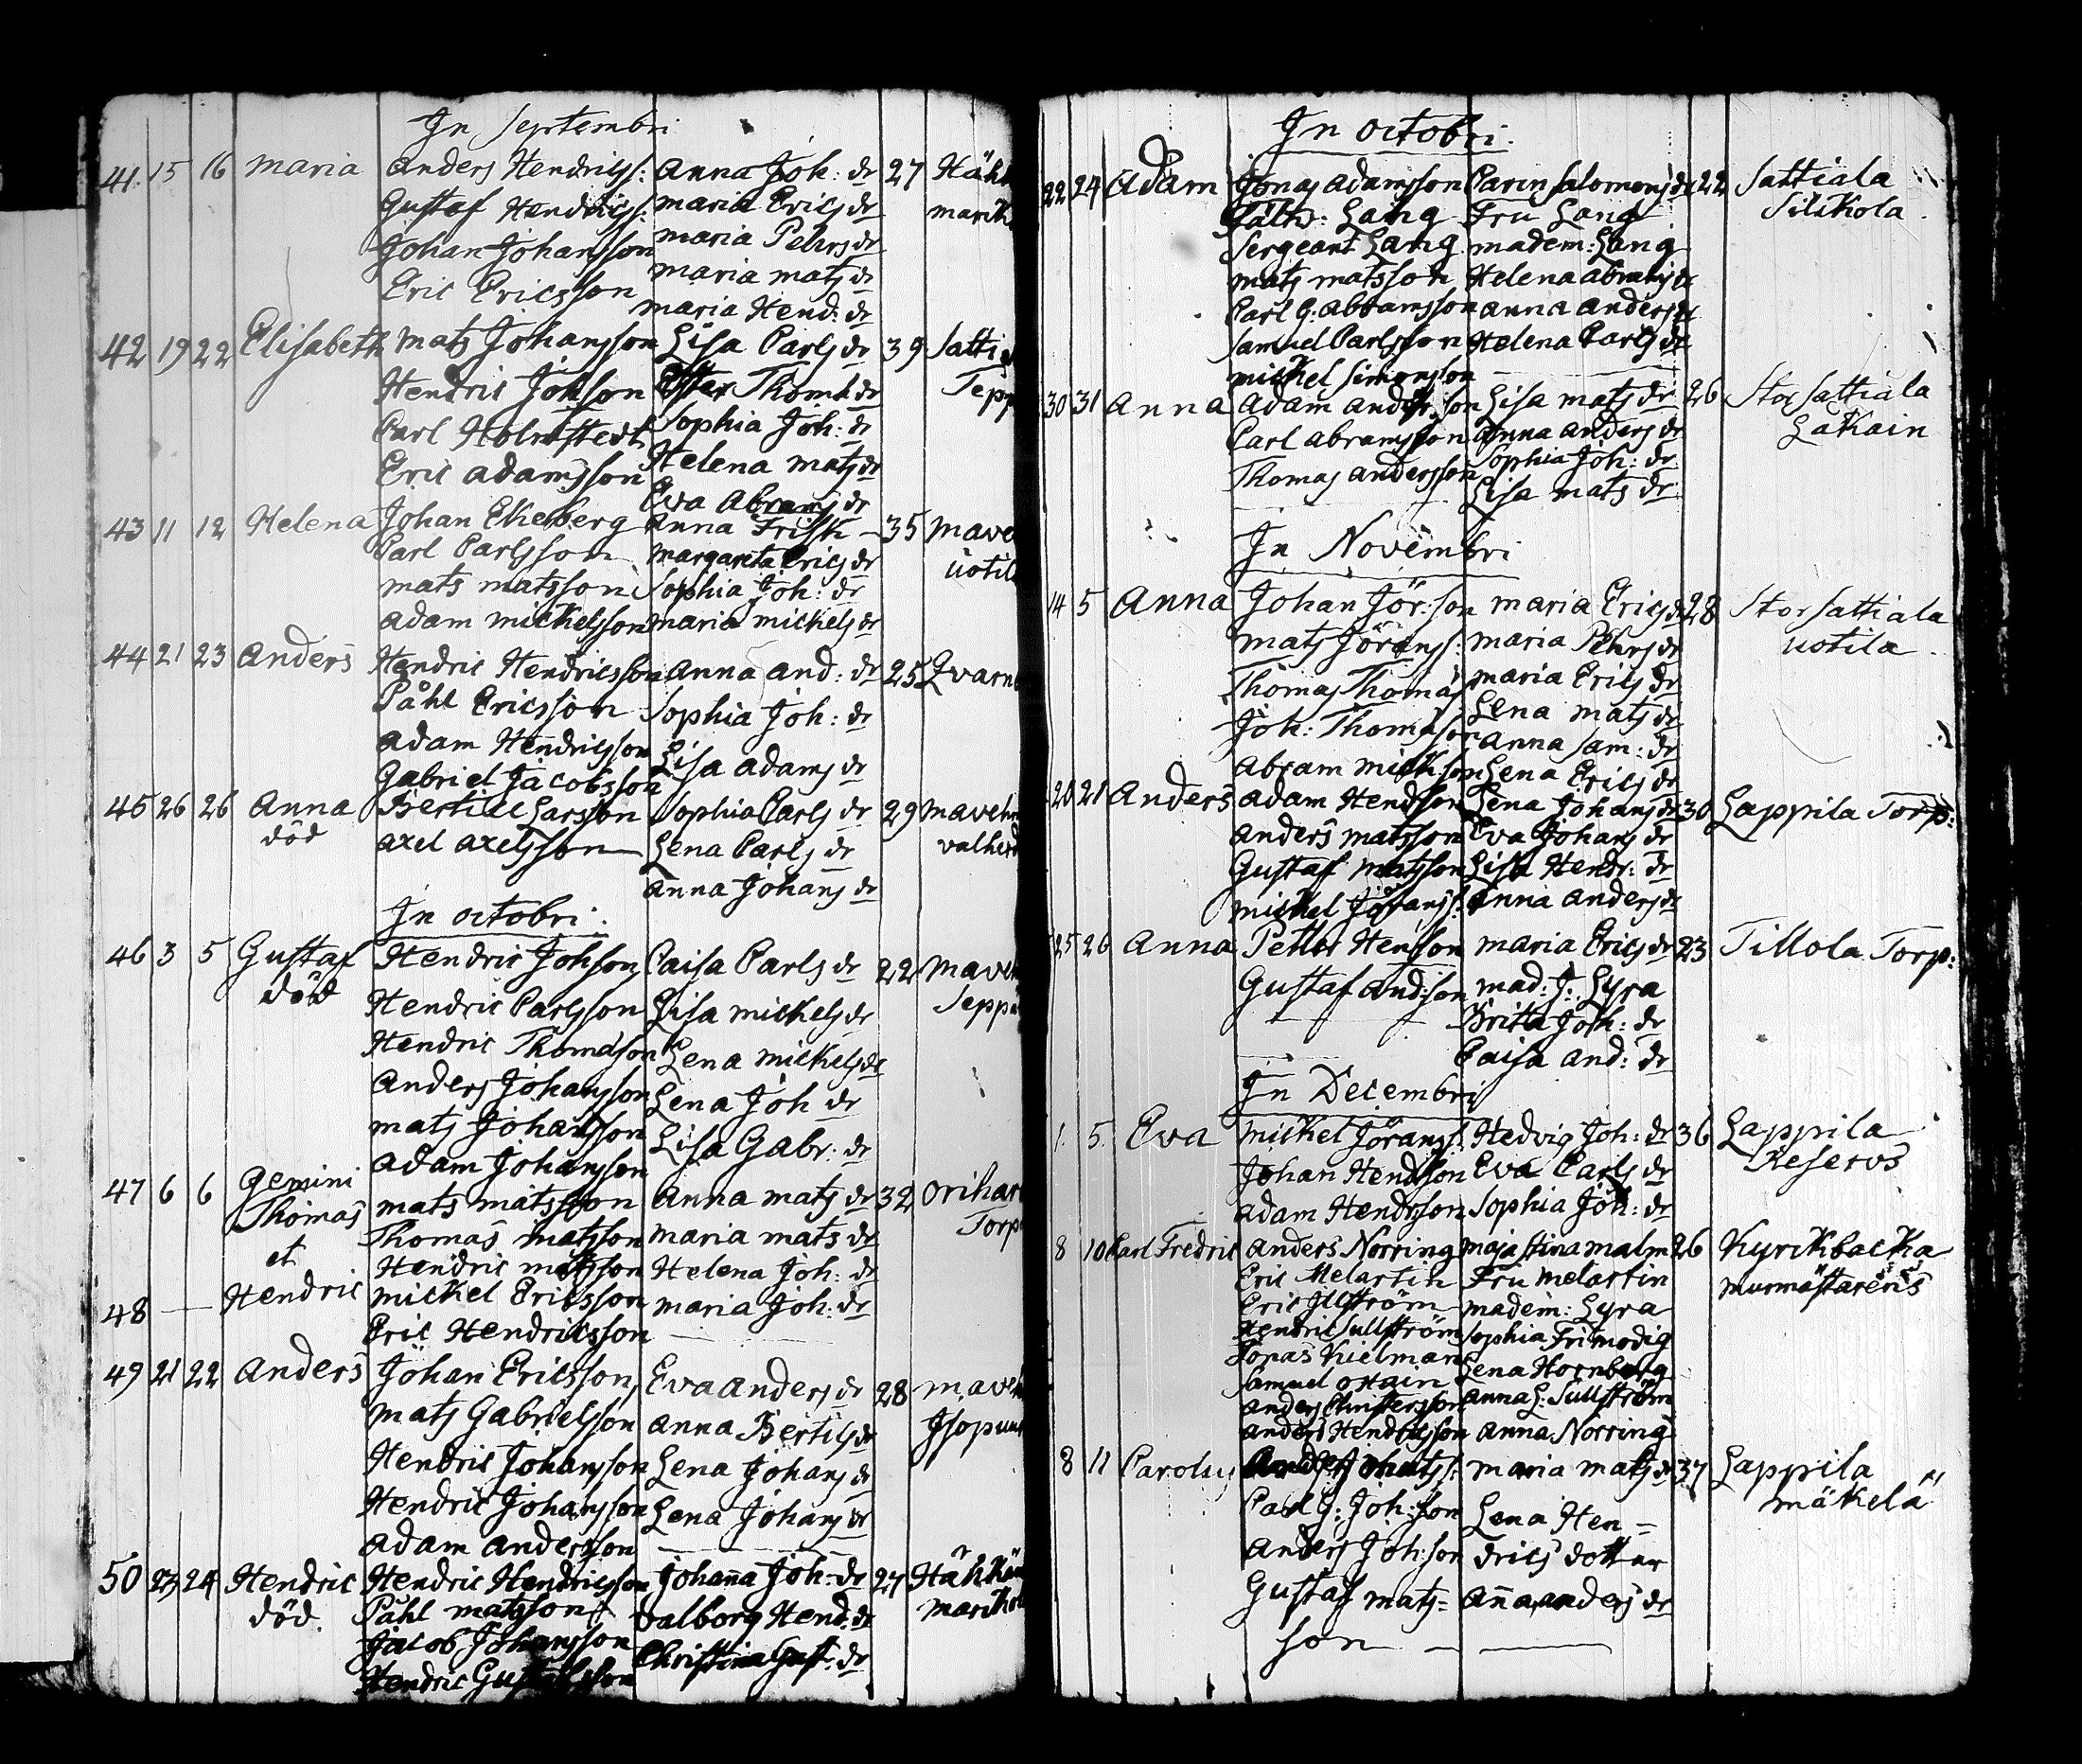 In Septembri
41. 15 16 Maria Anders Hendricss: Anna Joh: dr 27 Hähk
Gustaf Hendricss: Maria Ericsdr marik
Johan Johansson Maria Pehrsdr
Eric Ericsson Maria Matsdr
Maria Hend: dr
42 19 22 Elisabeth Mats Johansson Lisa Carlsdr 39 Satti
Hendric Johson Ester Thom: dr Tepp
Carl Holmstedt Sophia Joh: dr
Eric Adamsson Helena Matsdr
Eva Abramsdr
43 11 12 Helena Johan Ekeberg Anna Frisk 35 Mave
Carl Carlsson Margareta Ericsdr uotil
Mats Matsson Sophia Joh: dr
Adam Mickelsson Maria Mickelsdr
44 21 23 Anders Hendric Hendricsson Anna And: dr 25 Qvarn
Påhl Ericsson Sophia Joh: dr
Adam Hendricsson Lisa Adamsdr
Gabriel Jacobsson
45 26 26 Anna Bertill Larsson Sophia Carlsdr 29 Maveh
död Axel Axelsson Lena Carlsdr valhe
Anna Johansdr
In Octobri
46 3 5 Gustaf Hendric Johson Caisa Carlsdr 22 Mave
död Hendric Carlsson Lisa Mickelsdr Sepp
Hendric Thomasson Lena Mickelsdr
Anders Johansson Lena Joh dr
Mats Johansson Lisa Gabr: dr
Adam Johansson
47 6 6 Gemini Mats Matsson Anna Matsdr 32 Orihar
Thomas Thomas Matsson Maria Matsdr Torp
et Hendric Matsson Helena Joh: dr
48 — Hendric Mickel Ericsson Maria Joh: dr
Eric Hendricsson
49 21 22 Anders Johan Ericsson Eva Andersdr 28 Mave
Mats Gabrielsson Anna Bertilsdr Isopu
Hendric Johansson Lena Johansdr
Hendric Johansson Lena Johansdr
Adam Andersson
50 23 24 Hendric Hendric Hendricsson Johanna Joh: dr 27 Hähkä
död. Påhl Matsson Valborg Hend: dr Mariko
Jacob Johansson Christina Gust: dr
Hendric Gustafsson
In Octobri.
22 24 Adam Jonas Adamsson Carin Salomonsdr 22 Sattiala
Lang Fru Lang Silikola
Sergeant Lang Madem: Lang
Mats Matsson Helena Abramsdr
Carl G: Abramsson Anna Andersdr
Samuel Carlsson Helena Carlsdr
Mickel Simonsson
30 31 Anna Adam Anders:son Lisa Matsdr 26 Stor Sattiala
Carl Abramsson Anna Andersdr Lakain
Thomas Andersson Sophia Joh: dr
Lisa Mats dr
In Novembri
14 5 Anna Johan Jör:son Maria Ericsdr 28 Stor Sattiala
Mats Jöranss: Maria Pehrsdr uotila
Thomas Thomas Maria Ericsdr
Joh: Thomasson Lena Matsdr
Anna Sam: dr
Abram Mick:son Lena Ericsdr
20 21 Anders Adam Hendson Lena Johansdr 30 Lappila Torp:
Anders Matsson Eva Johansdr
Gustaf Matsson Lisa Hendr: dr
Mickel Jöranss: Anna Andersdr
25 26 Anna Petter Hensson Maria Ericsdr 23 Tillola Torp:
Gustaf And:son Mad: J: Lyra
Britta Joh: dr
Caisa And: dr
In Decembri
1. 5. Eva Mickel Jöranss: Hedvig Joh: dr 36 Lappila
Johan Hendsson Eva Carlsdr Reservs
Adam Hendsson Sophia Joh: dr
8 10 Carl Fredric Anders Norring Maja Stina Malm 26 Kyrckbacka
Eric Melartin Fru Melartin Murmästarens
Eric Illström Madem: Lyra
Hendric Sullström Sophia Frimodig
Jonas Kielman Lena Hornborg
Samuel Anna L: Sullström
Anders Christersson
Anders Hendricsson Anna Norring
8 11 Carolus Maria Matsdr 37 Lappila
Carl G: Joh:son Lena Hen= Mäkelä
Anders Joh:son drics dotter
Gustaf Mats= Anna Andersdr
son